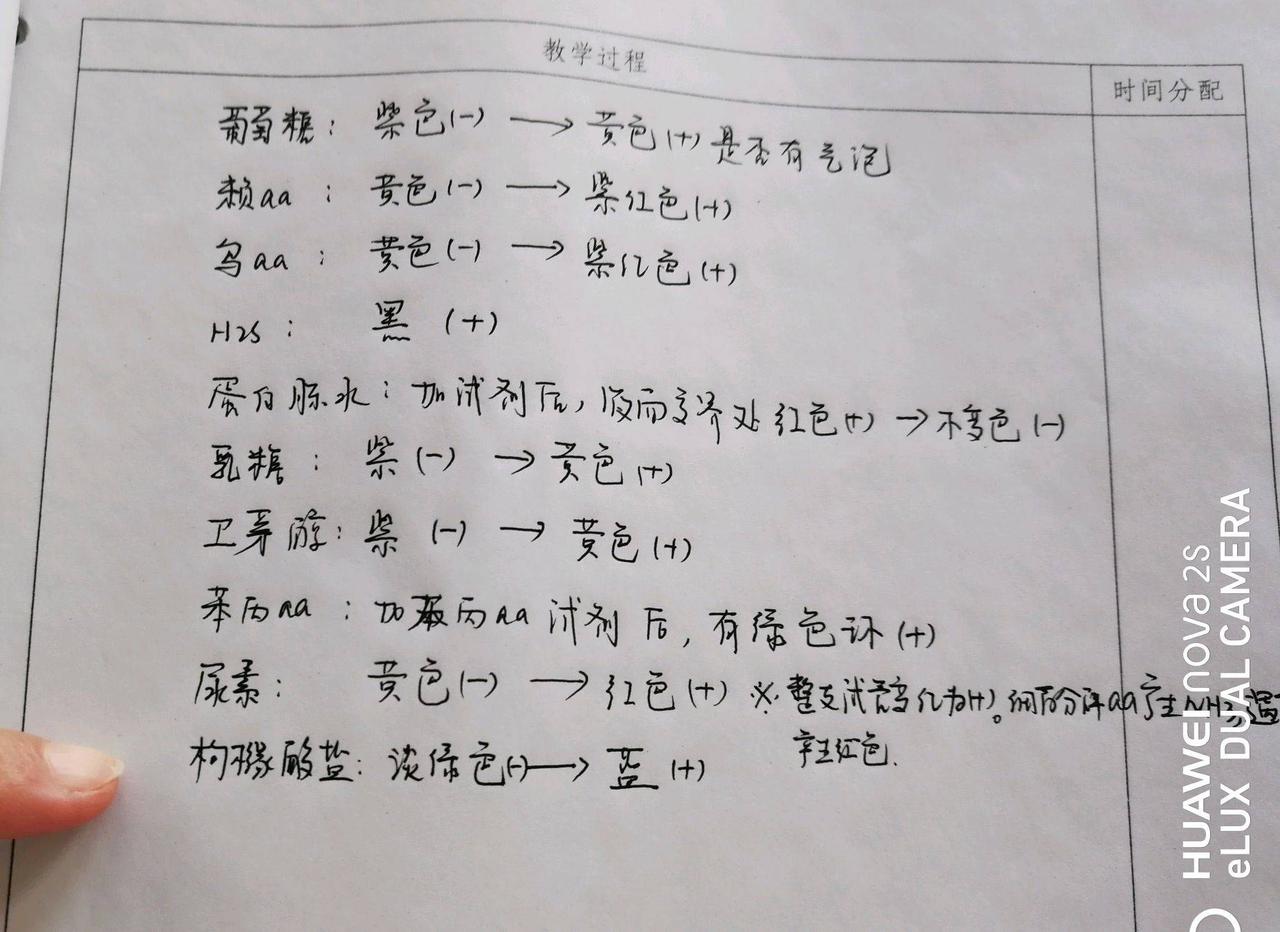 教学过程
时间分配
葡萄糖： 紫色(-) → 黄色(+) 是否有气泡
赖aa ： 黄色(-) → 紫红色(+)
鸟aa ： 黄色(-) → 紫红色(+)
H2S ： 黑 (+)
蛋白胨水：加试剂后，液面交界处红色(+) → 不变色(-)
乳糖 ： 紫(-) → 黄色(+)
卫茅醇：紫 (-) → 黄色(+)
苯丙aa ：加苯丙aa 试剂后，有绿色环(+)
尿素： 黄色(-) → 红色(+) ※ 整支试管变化为(+)。细菌分解aa产生NH3遇
产生红色.
枸橼酸盐：淡绿色(-) → 蓝(+)
HUAWEI nova 2S
eLUX DUAL CAMERA